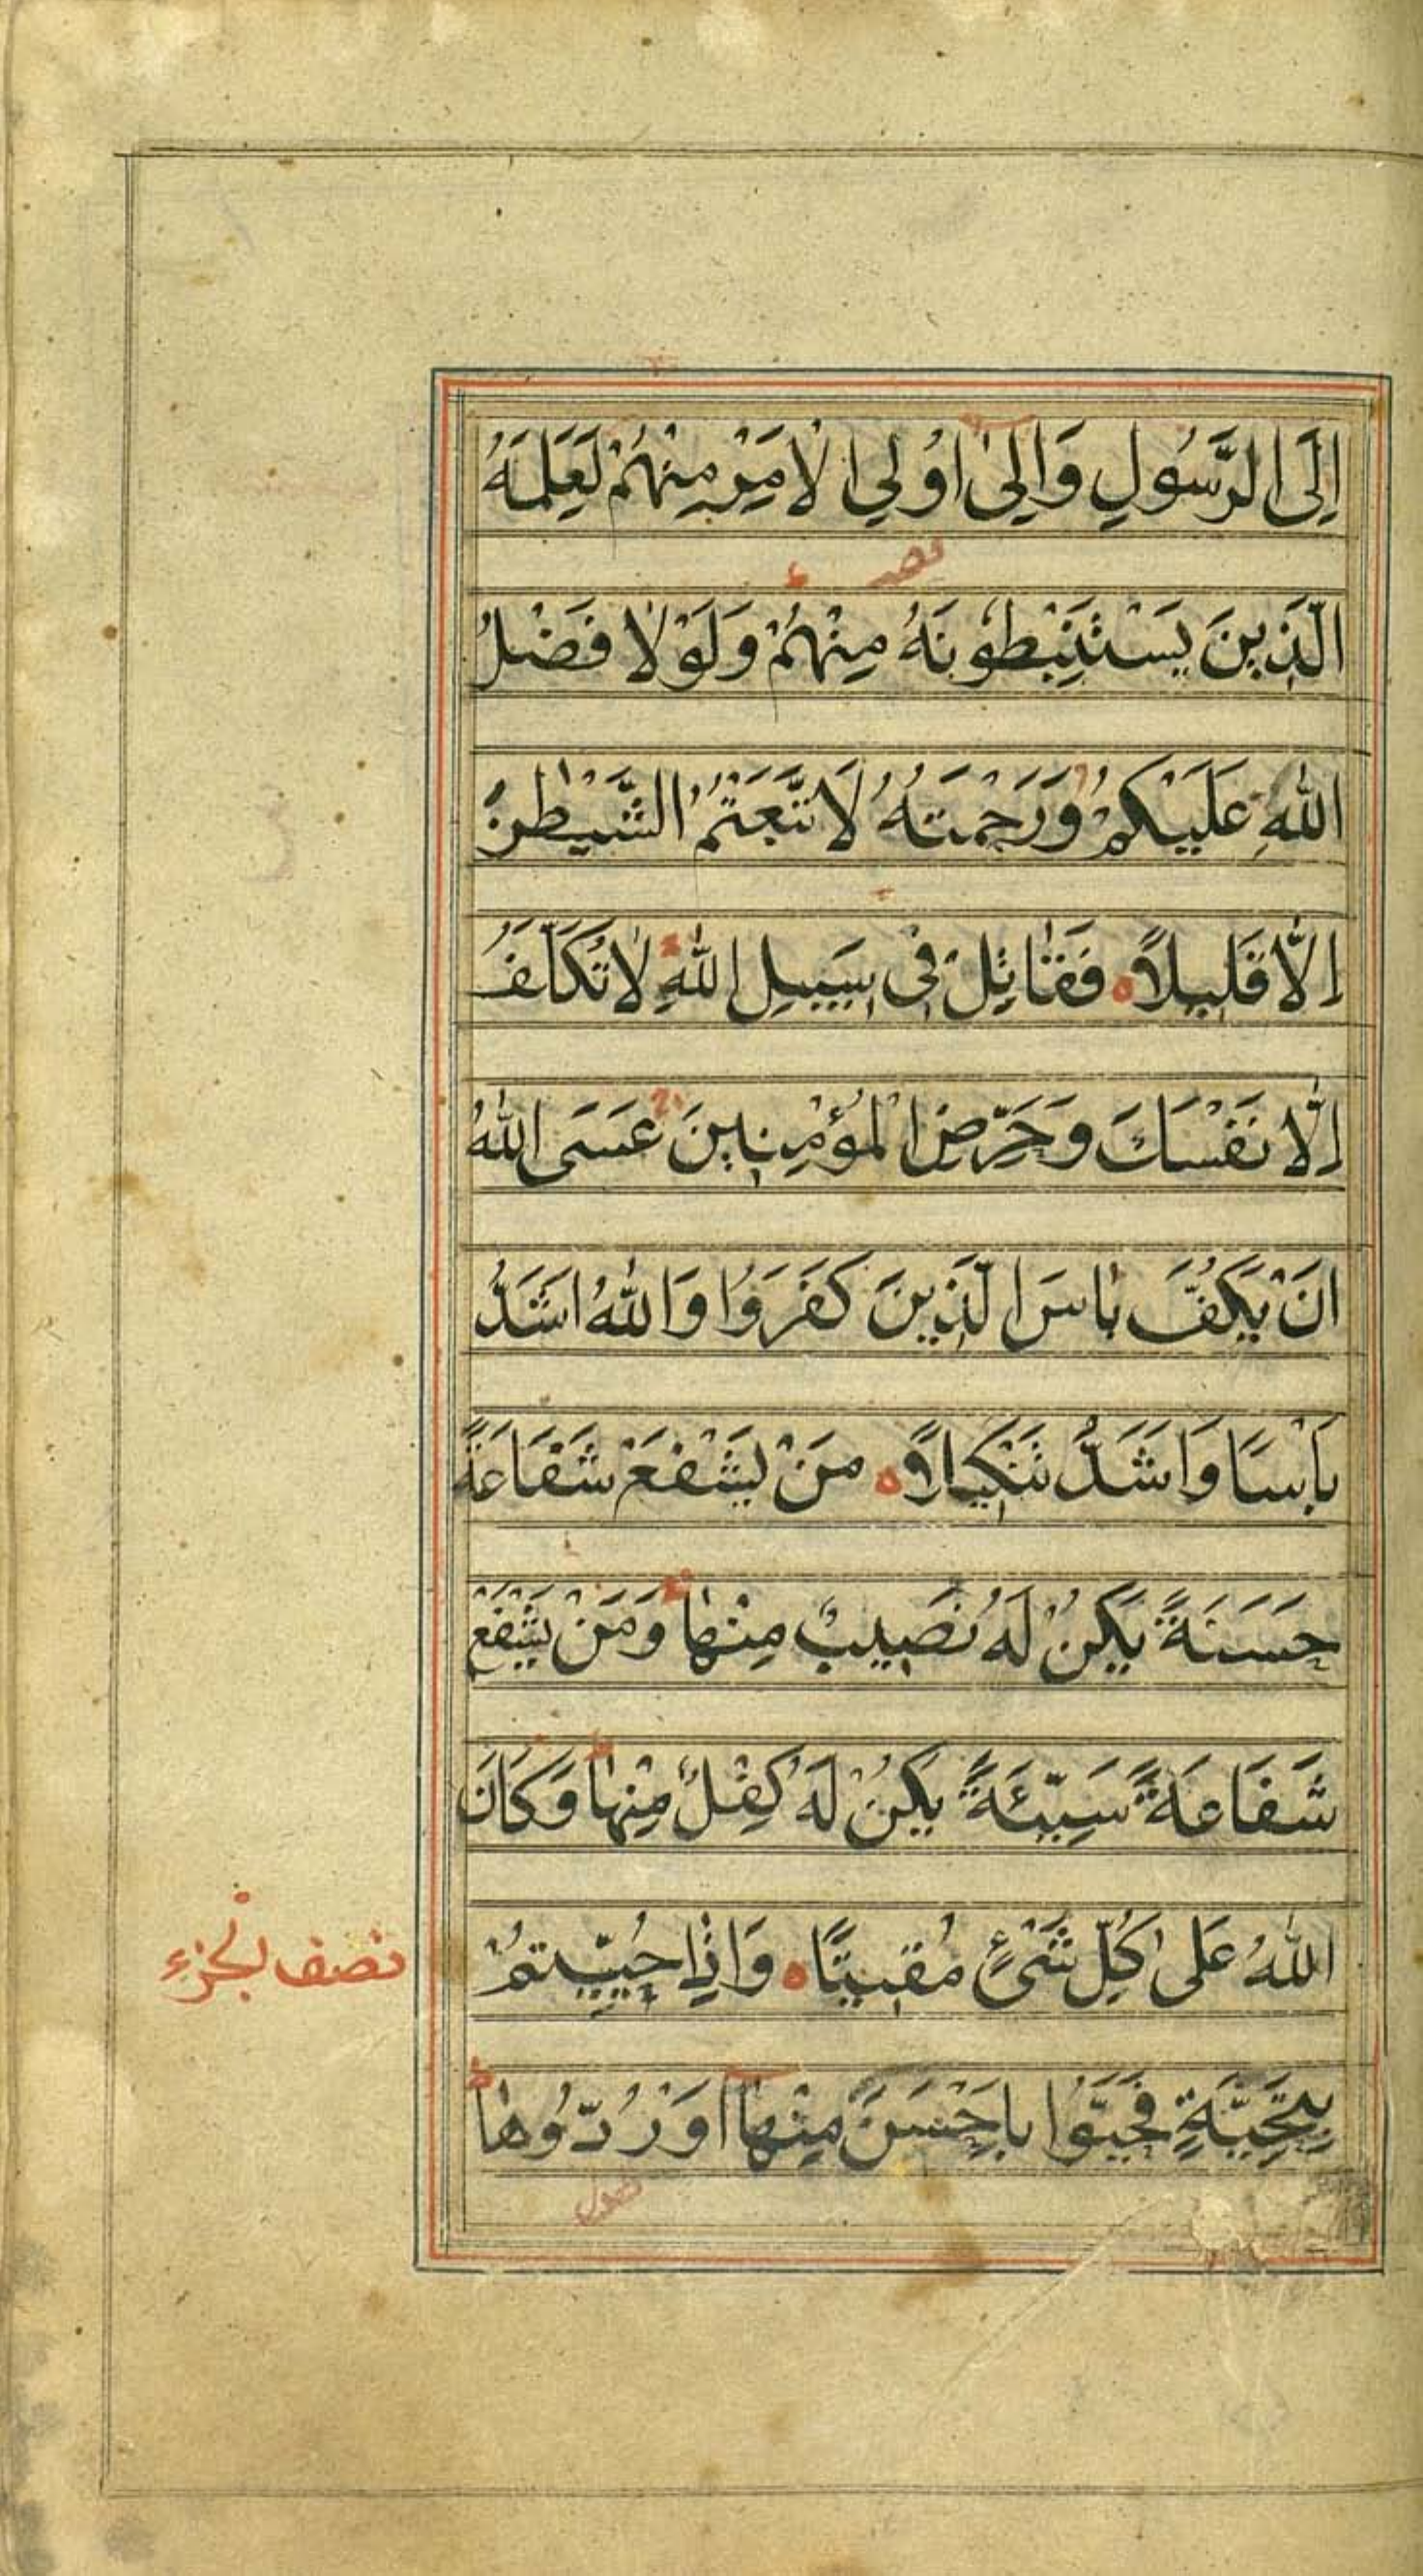 اِلَى الرَّسُولِ وَاِلىٰ اُولِي الْاَمْرِ مِنْهُمْ لَعَلِمَهُ
الَّذِينَ يَسْتَنْبِطُونَهُ مِنْهُمْ وَلَوْلٰا فَضْلُ
اللّٰهِ عَلَيْكُمْ وَرَحْمَتُهُ لَاتَّبَعْتُمُ الشَّيْطٰنَ
اِلّٰا قَلِيلًا ه فَقٰاتِلْ فِى سَبِيلِ اللّٰهِ لٰا تُكَلَّفُ
اِلّٰا نَفْسَكَ وَحَرِّضِ الْمُؤْمِنِينَ عَسَى اللّٰهُ
اَنْ يَكُفَّ بَاْسَ الَّذِينَ كَفَرُوا وَاللّٰهُ اَشَدُّ
بَاْسًا وَاَشَدُّ تَنْكِيلًا ه مَنْ يَشْفَعْ شَفَاعَةً
حَسَنَةً يَكُنْ لَهُ نَصِيبٌ مِنْهٰا وَمَنْ يَشْفَعْ
شَفَاعَةً سَيِّئَةً يَكُنْ لَهُ كِفْلٌ مِنْهٰا وَكَانَ
اللّٰهُ عَلٰى كُلِّ شَىْءٍ مُقِيتًا ه وَاِذٰا حُيِّيتُمْ
نصف الجزء
بِتَحِيَّةٍ فَحَيُّوا بِاَحْسَنَ مِنْهٰا اَوْ رُدُّوهٰا